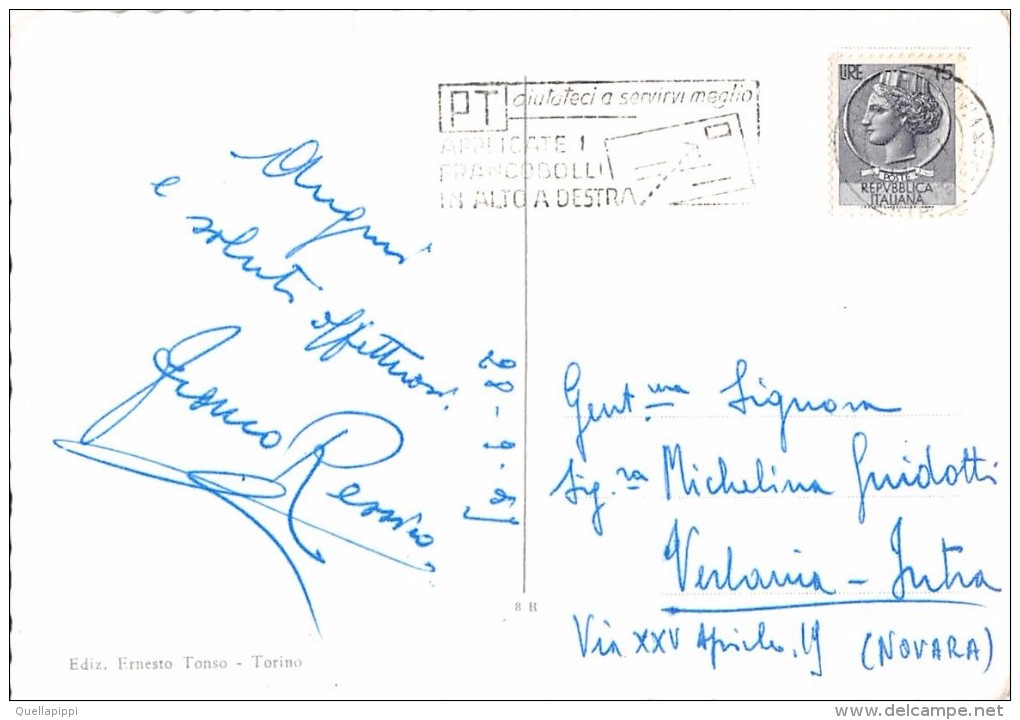 PT aiutateci a servirvi meglio
APPLICATE I
FRANCOBOLLI
IN ALTO A DESTRA
LIRE 15
POSTE
REPVBBLICA
ITALIANA
Auguri
e saluti affettuosi.
Franco
Gent.ma Signora
Sig.ra Michelina Guidotti
Verbania - Intra
Via XXV Aprile, 19 (NOVARA)
8 R
Ediz. Ernesto Tonso - Torino
Quellapippi
delcampe.net